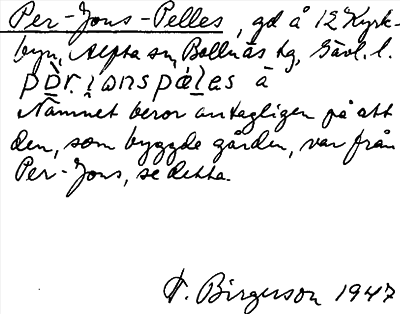 Per-Jons-Pelles, gd å 12 Kyrk-
byn, Alfta sn, Bollnäs tg, Gävl. l.
å
Namnet beror antagligen på att
den, som byggde gården, var från
Per-Jons, se detta.
T. Birgerson 1947